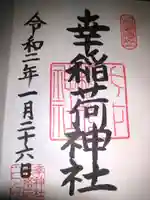 幸稲荷神社
令和二年一月二十六日